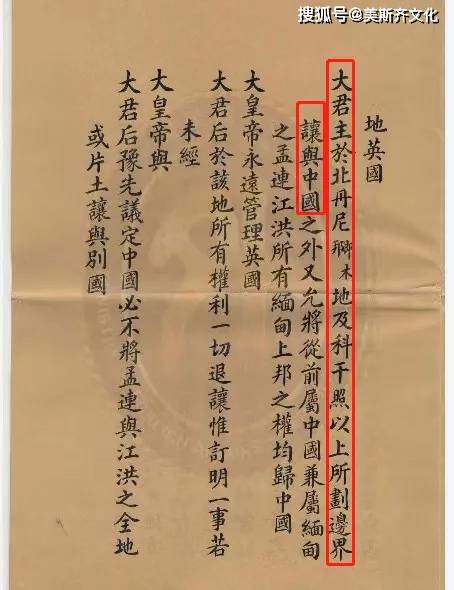 搜狐号@美斯齐文化
地英國
大君主於北丹尼卽木邦地及科干照以上所劃邊界
讓與中國之外又允將從前屬中國兼屬緬甸
之孟連江洪所有緬甸上邦之權均歸中國
大皇帝永遠管理英國
大君后於該地所有權利一切退讓惟訂明一事若
未經
大皇帝與
大君后豫先議定中國必不將孟連與江洪之全地
或片土讓與別國